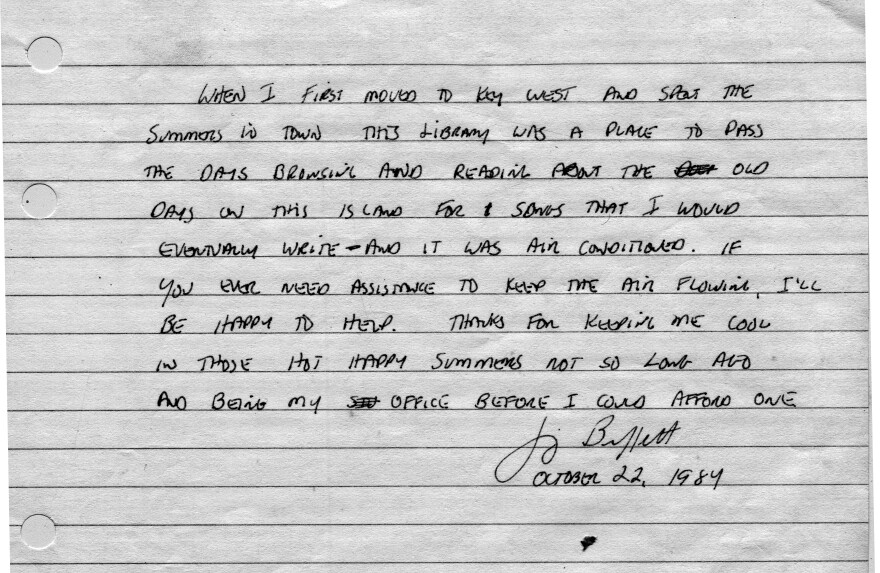 WHEN I FIRST MOVED TO KEY WEST AND SPENT THE
SUMMERS IN TOWN THIS LIBRARY WAS A PLACE TO PASS
THE DAYS BROWSING AND READING ABOUT THE OLD
DAYS ON THIS ISLAND FOR SONGS THAT I WOULD
EVENTUALLY WRITE - AND IT WAS AIR CONDITIONED. IF
YOU EVER NEED ASSISTANCE TO KEEP THE AIR FLOWING, I'LL
BE HAPPY TO HELP. THANKS FOR KEEPING ME COOL
IN THOSE HOT HAPPY SUMMERS NOT SO LONG AGO
AND BEING MY OFFICE BEFORE I COULD AFFORD ONE
Jimmy Buffett
OCTOBER 22, 1984